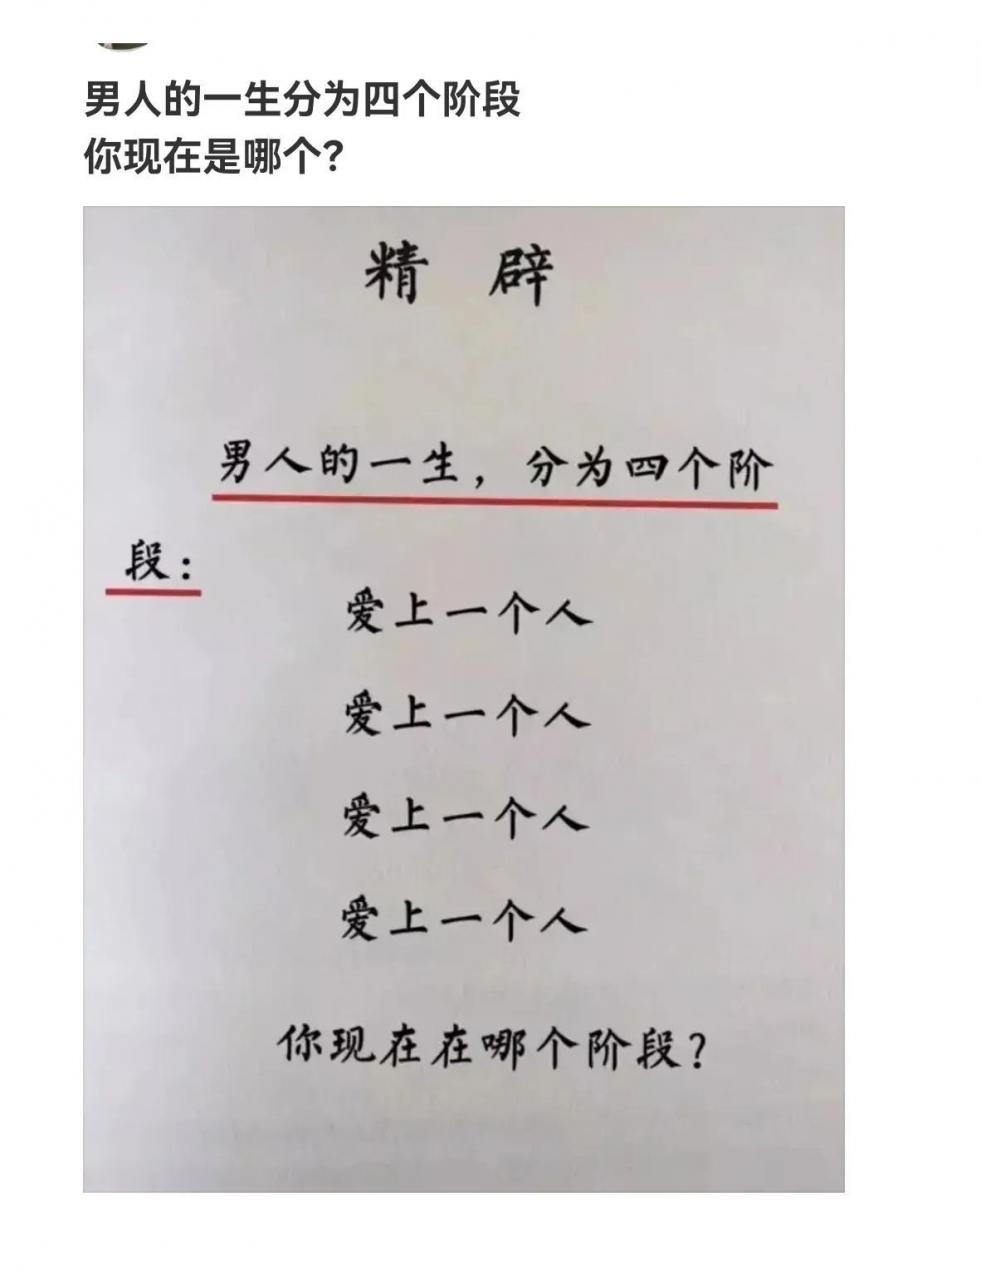 男人的一生分为四个阶段
你现在是哪个？
精 辟
男人的一生，分为四个阶
段：
爱上一个人
爱上一个人
爱上一个人
爱上一个人
你现在在哪个阶段？